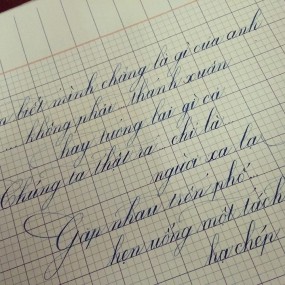 biết mình chẳng là gì của anh
... không phải... thanh xuân
hay tương lai gì cả
Chúng ta thật ra chỉ là
người xa lạ
Gặp nhau trên phố...
hẹn uống một tách
hạ chép